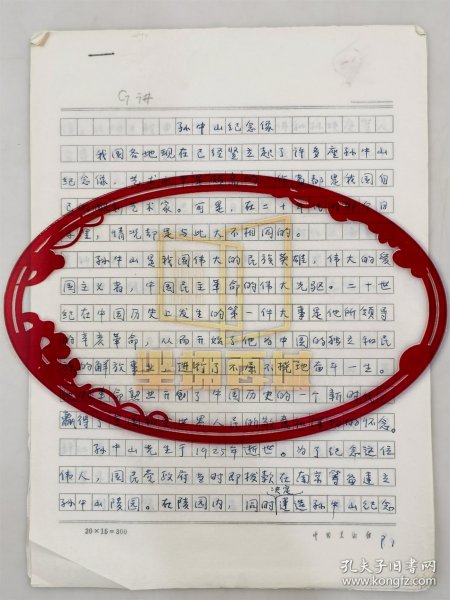 G讲
孙中山纪念像
我国各地现在已经竖立起了许多座孙中山
纪念像，艺术都是我国自
己艺术家。可是，在二十
里，情况却是与此大不相同的。
孙中山是我国伟大的民族英雄，伟大的爱
国主义者，中国民主革命的伟大先驱。二十世
纪在中国历史上发生的第一件大事是他所领导
的辛亥革命，从而开始了他为中国的独立和民
的解放事业，进行了不屈不挠地奋斗一生。
革命熟业开创了中国历史的一个新时
赢得了世界人民的怀念。
孙中山先生于1925年逝世。为了纪念这位
伟人，国民党政府当时即拨款在南京筹备建立
孙中山陵园。在陵园内，同时决定建造孙中山纪念
20×15=300
中国美术馆
P.1
坐拥百城
孔夫子旧书网
www.kongfz.com